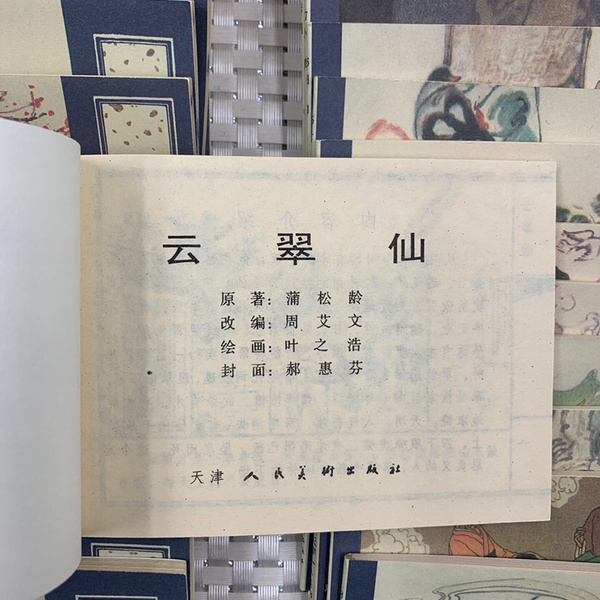 云翠仙
原著：蒲松龄
改编：周艾文
绘画：叶之浩
封面：郝惠芬
天津 人民美術出版社